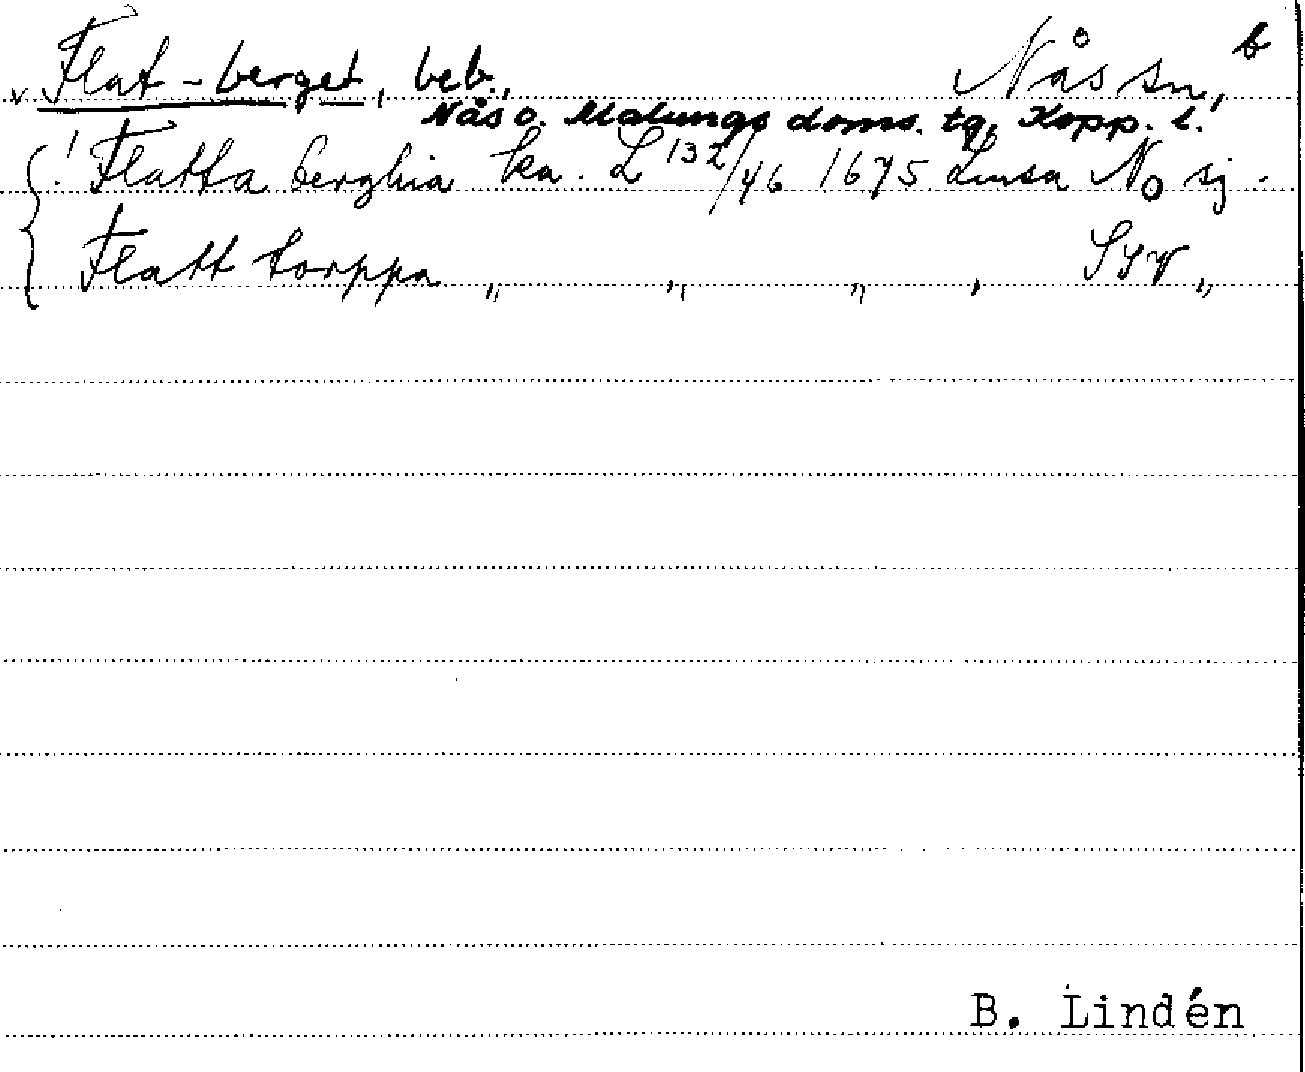 v Flat-berget, beb., Nås sn, b
Nås o. Malungs doms. tg, Kopp. l.
! Flatta berghia ka. L 132/46 1675 Lmsa No sj.
Flatt torppa " " " " SSV "
B. Lindén